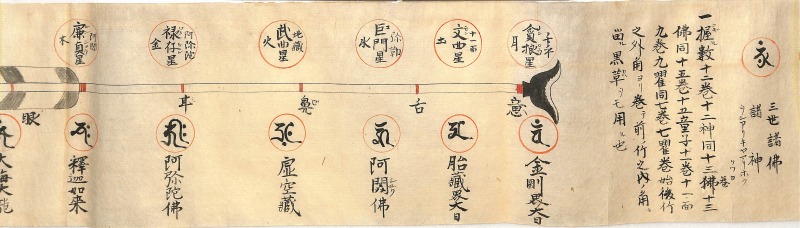 三世諸佛
諸神
一握數十二巻十二神同十三佛十三
佛同十五巻十五童子十一巻十一面
九巻九曜同七巻七曜巻始後竹
之外角ヨリ巻前竹之内角
黒草ヲモ用ル也
子年
貪狼星
月
意
金剛界大日
十一面
文曲星
土
舌
胎藏界大日
弥勒
巨門星
水
阿閦佛
地藏
武曲星
火
鼻
虚空藏
阿弥陀
禄存星
金
耳
阿弥陀佛
廉貞星
木
眼
釋迦如来
大海大龍